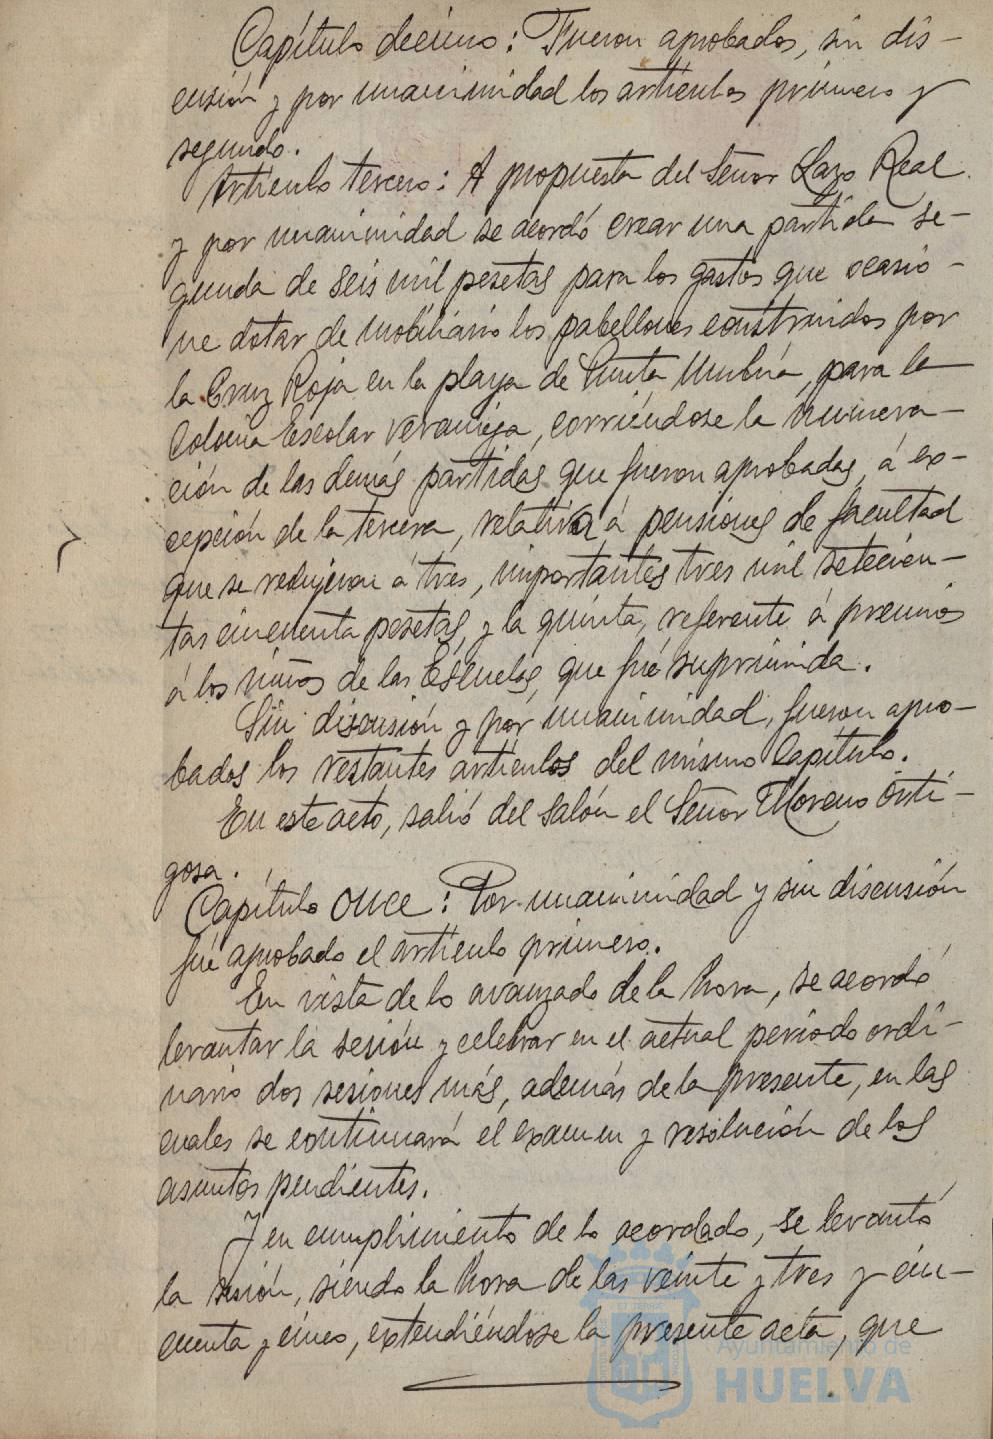 Capítulo décimo: Fueron aprobados, sin dis-
cusión y por unanimidad los artículos primero y
segundo.
Artículo tercero: A propuesta del Señor Lazo Real
y por unanimidad se acordó crear una partida se-
gunda de seis mil pesetas para los gastos que ocasio-
ne dotar de mobiliario los pabellones construidos por
la Cruz Roja en la playa de Punta Umbría, para la
Colonia Escolar veraniega, corriéndose la numera-
ción de las demás partidas que fueron aprobadas, á ex-
cepción de la tercera, relativa á pensiones de facultad
que se redujeron á tres, importantes tres mil setecien-
tas cincuenta pesetas, y la quinta, referente á premios
á los niños de las Escuelas, que fué suprimida.
Sin discusión y por unanimidad, fueron apro-
bados los restantes artículos del mismo Capítulo.
En este acto, salió del salón el Señor Moreno Ortí-
gosa.
Capítulo once: Por unanimidad y sin discusión
fué aprobado el artículo primero.
En vista de lo avanzado de la hora, se acordó
levantar la sesión y celebrar en el actual período ordi-
nario dos sesiones más, además de la presente, en las
cuales se continuará el examen y resolución de los
asuntos pendientes.
Y en cumplimiento de lo acordado, se levantó
la sesión, siendo la hora de las veinte y tres y cin-
cuenta y cinco, extendiéndose la presente acta, que
Ayuntamiento de
HUELVA